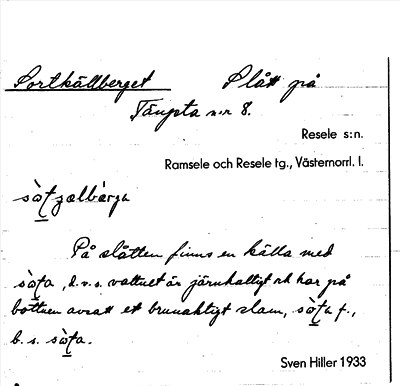 Sortkällberget Slått på
Tängsta n:r 8.
Resele s:n.
Ramsele och Resele tg., Västernorrl. l.
På slåtten finns en källa med
, d.v.s. vattnet är järnhaltigt och har på
bottnen avsatt et brunaktigt slam, f.,
b. s.
Sven Hiller 1933